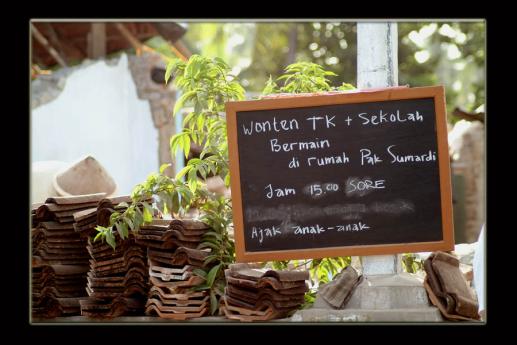 Wonten TK + SekoLah
Bermain
di rumah Pak Sumardi
Jam 15.00 SORE
Ajak anak-anak